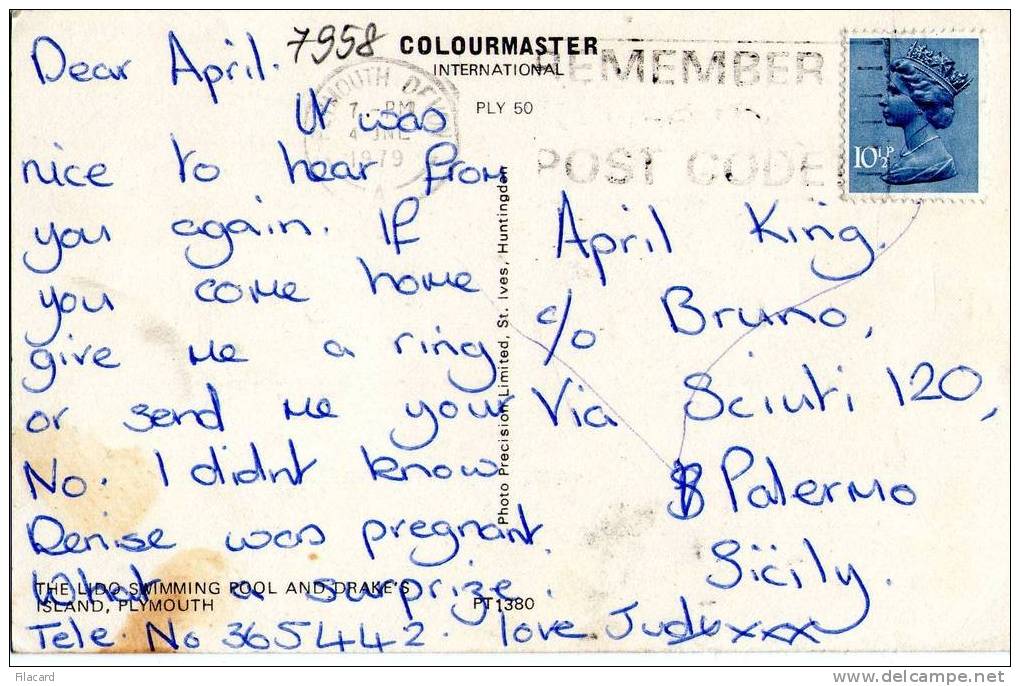 7958
COLOURMASTER
INTERNATIONAL
PLY 50
REMEMBER
POST CODE
PLYMOUTH DEVON
7 - PM
4 JNE
1979
10½P
Dear April.
It was
nice to hear from
you again. If
you come home
give me a ring
or send me your
No. I didnt know
Denise was pregnant.
What a surprize.
Tele No 365442. love Judy xxx
April King.
c/o Bruno,
Via Sciuti 120,
Palermo
Sicily.
Photo Precision Limited, St. Ives, Huntingdon
THE LIDO SWIMMING POOL AND DRAKE'S
ISLAND, PLYMOUTH
PT1380
Filacard
delcampe.net